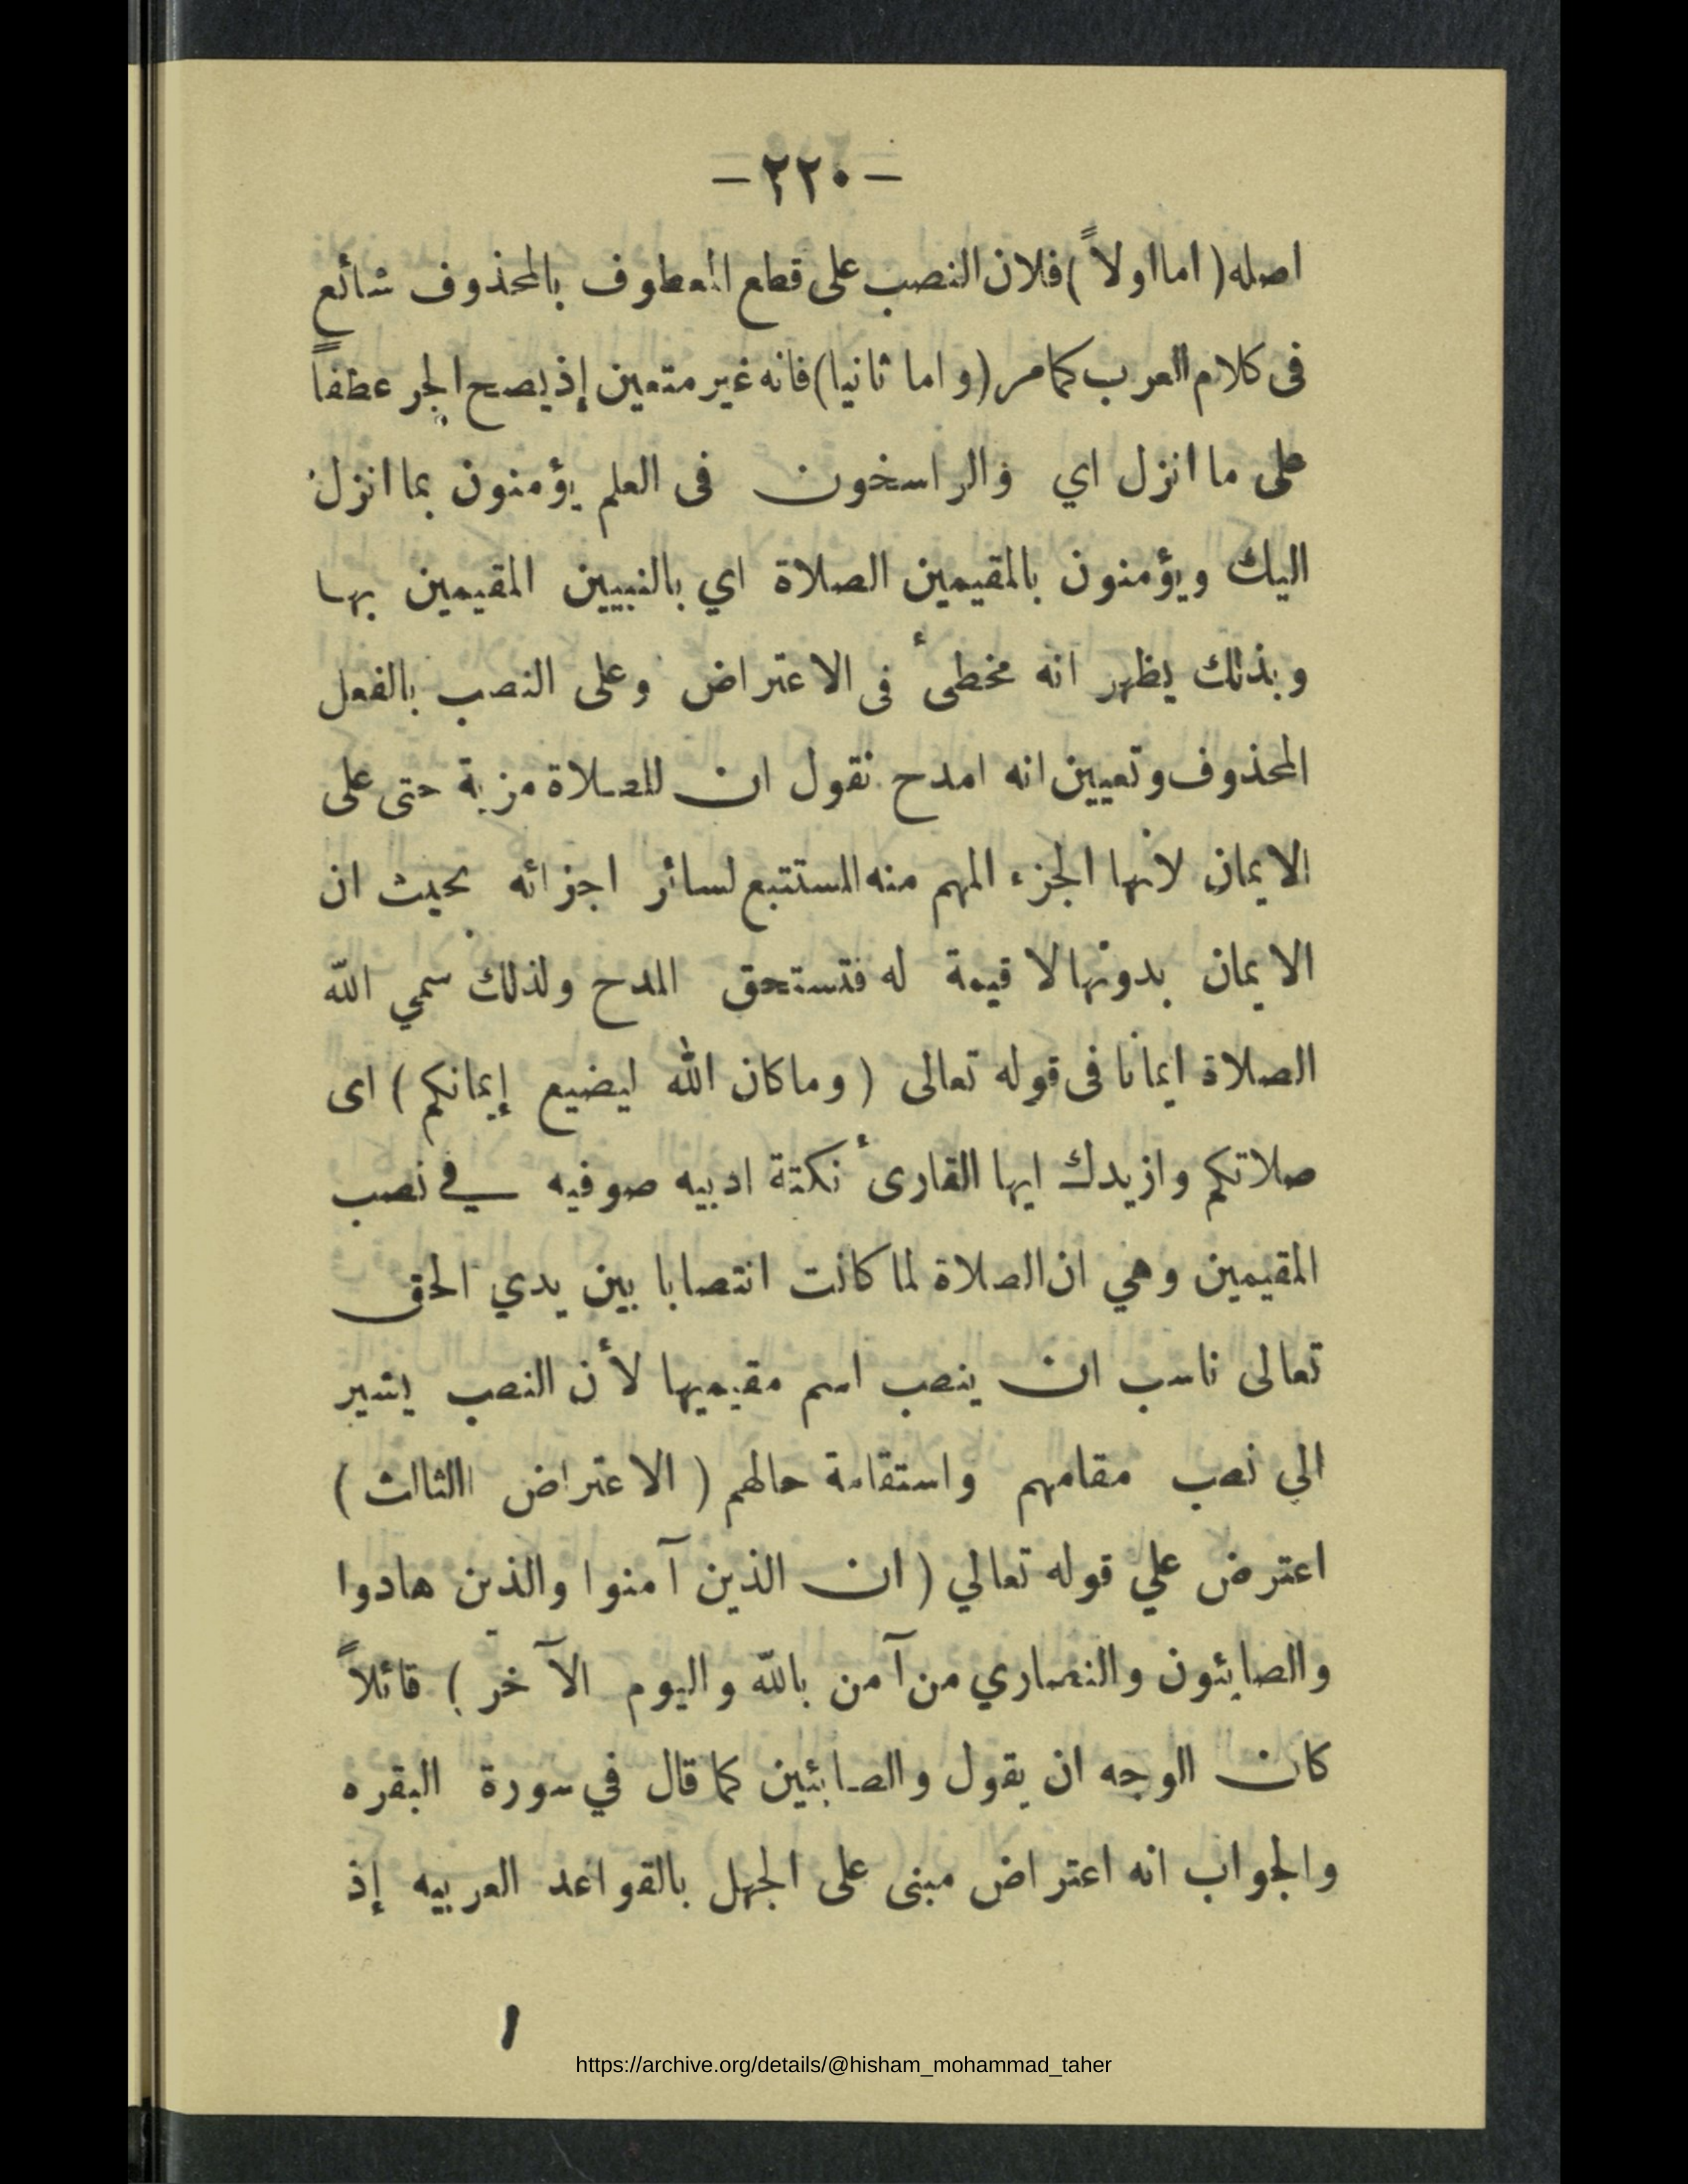 -٢٢٠-
اصله ( اما اولاً ) فلان النصب على قطع المعطوف بالمحذوف شائع
فى كلام العرب كما مر (و اما ثانيا) فانه غير متعين إذ يصح الجر عطفاً
على ما انزل اي والراسخون فى العلم يؤمنون بما انزل
اليك ويؤمنون بالمقيمين الصلاة اي بالنبيين المقيمين بها
وبذلك يظهر انه مخطىء فى الاعتراض وعلى النصب بالفعل
المحذوف وتعيين انه امدح نقول ان للصلاة مزية حتى على
الايمان لأنها الجزء المهم منه المستتبع لسائر اجزائه بحيث ان
الايمان بدونها لا قيمة له فتستحق المدح ولذلك سمي الله
الصلاة ايمانا فى قوله تعالى ( وما كان الله ليضيع إيمانكم ) اى
صلاتكم وازيدك ايها القارىء نكتة ادبيه صوفيه في نصب
المقيمين وهي ان الصلاة لما كانت انتصابا بين يدي الحق
تعالى ناسب ان ينصب اسم مقيميها لأن النصب يشير
الي نصب مقامهم واستقامة حالهم ( الاعتراض الثالث )
اعترض علي قوله تعالي ( ان الذين آمنوا والذين هادوا
والصابئون والنصاري من آمن بالله واليوم الآخر ) قائلاً
كان الوجه ان يقول والصابئين كما قال في سورة البقره
والجواب انه اعتراض مبنى على الجهل بالقواعد العربيه إذ
https://archive.org/details/@hisham_mohammad_taher